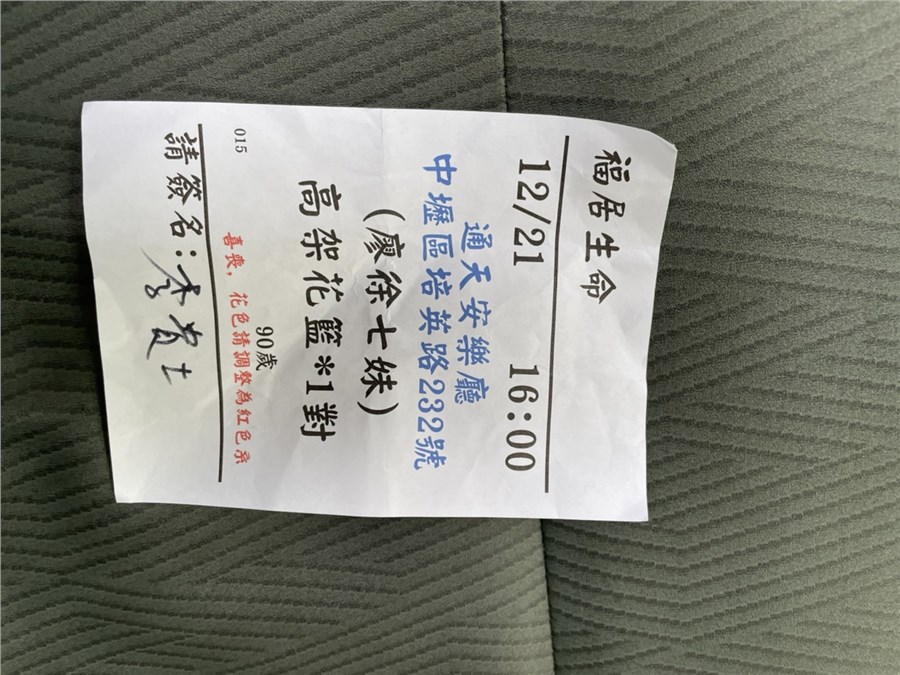 福居生命
12/21 16:00
通天安樂廳
中壢區培英路232號
(廖徐七妹)
高架花籃*1對
90歲
015
喜喪，花色請調整為紅色系
請簽名：李貴士